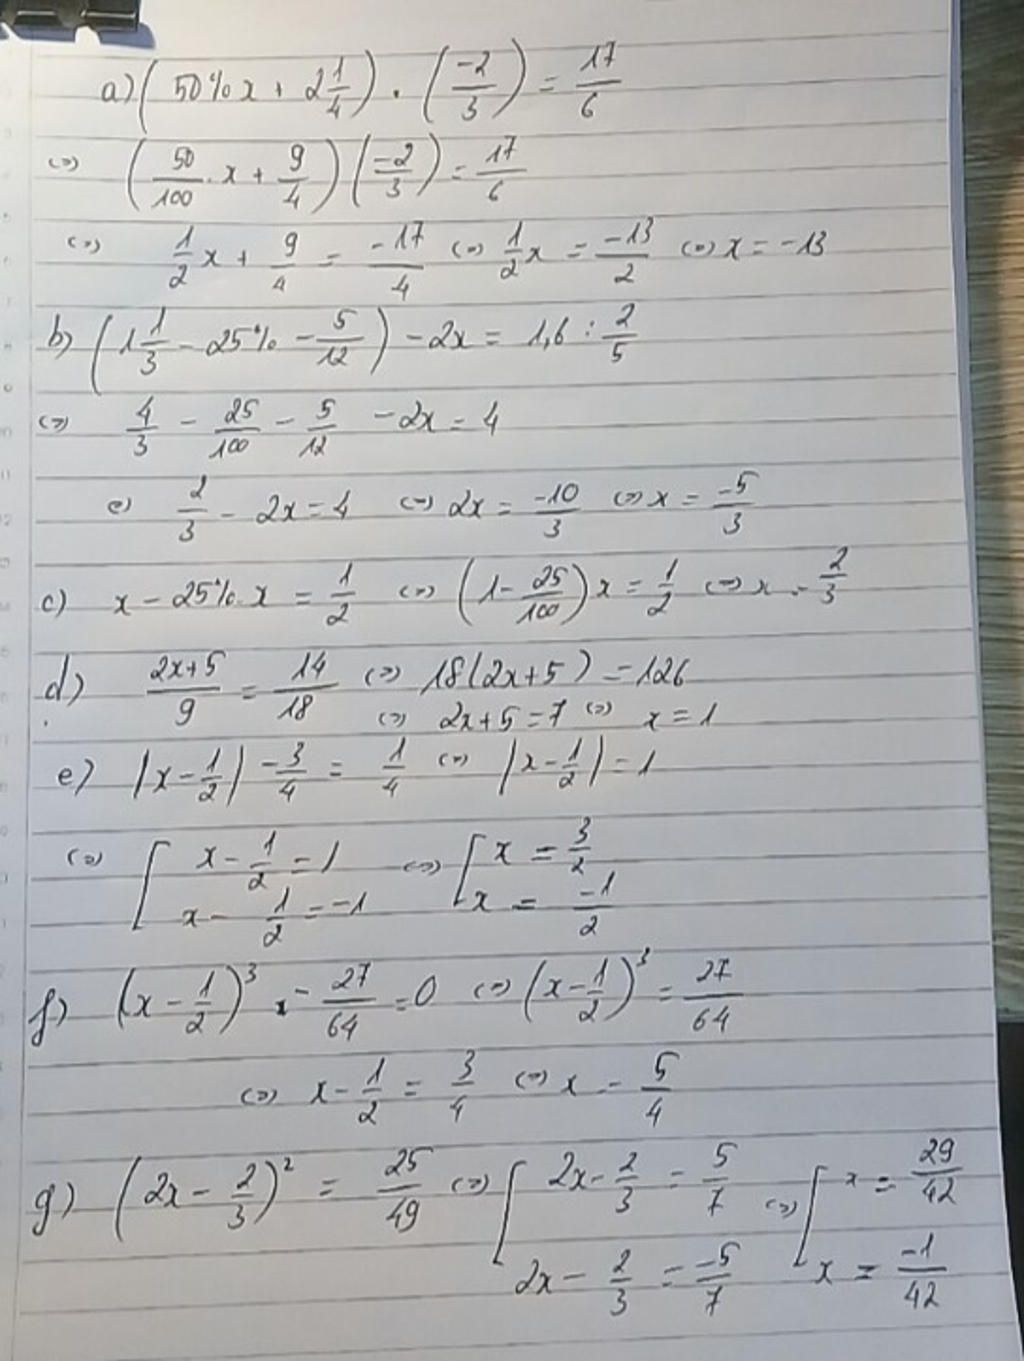 a) (50% x + 2 1/4) . (-2/3) = 17/6
(=) (50/100 . x + 9/4) (-2/3) = 17/6
(=) 1/2 x + 9/4 = -17/4 (=) 1/2 x = -13/2 (=) x = -13
b) (1 1/3 - 25% - 5/12) - 2x = 1,6 : 2/5
(=) 4/3 - 25/100 - 5/12 - 2x = 4
(=) 2/3 - 2x = 4 (=) 2x = -10/3 (=) x = -5/3
c) x - 25% . x = 1/2 (=) (1 - 25/100) x = 1/2 (=) x = 2/3
d) 2x+5/9 = 14/18 (=) 18(2x+5) = 126
(=) 2x+5 = 7 (=) x = 1
e) |x - 1/2| - 3/4 = 1/4 (=) |x - 1/2| = 1
(=) [ x - 1/2 = 1 (=) [ x = 3/2
x - 1/2 = -1 x = -1/2
f) (x - 1/2)³ - 27/64 = 0 (=) (x - 1/2)³ = 27/64
(=) x - 1/2 = 3/4 (=) x = 5/4
g) (2x - 2/3)² = 25/49 (=) [ 2x - 2/3 = 5/7 (=) [ x = 29/42
2x - 2/3 = -5/7 x = -1/42